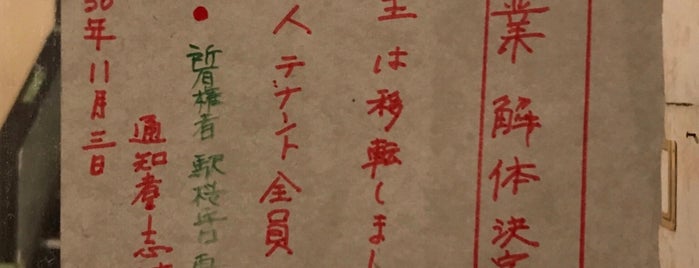 業解体決定
主は移転しました
人テナント全員
● 所有権者 駅
通知者一志
30年11月三日